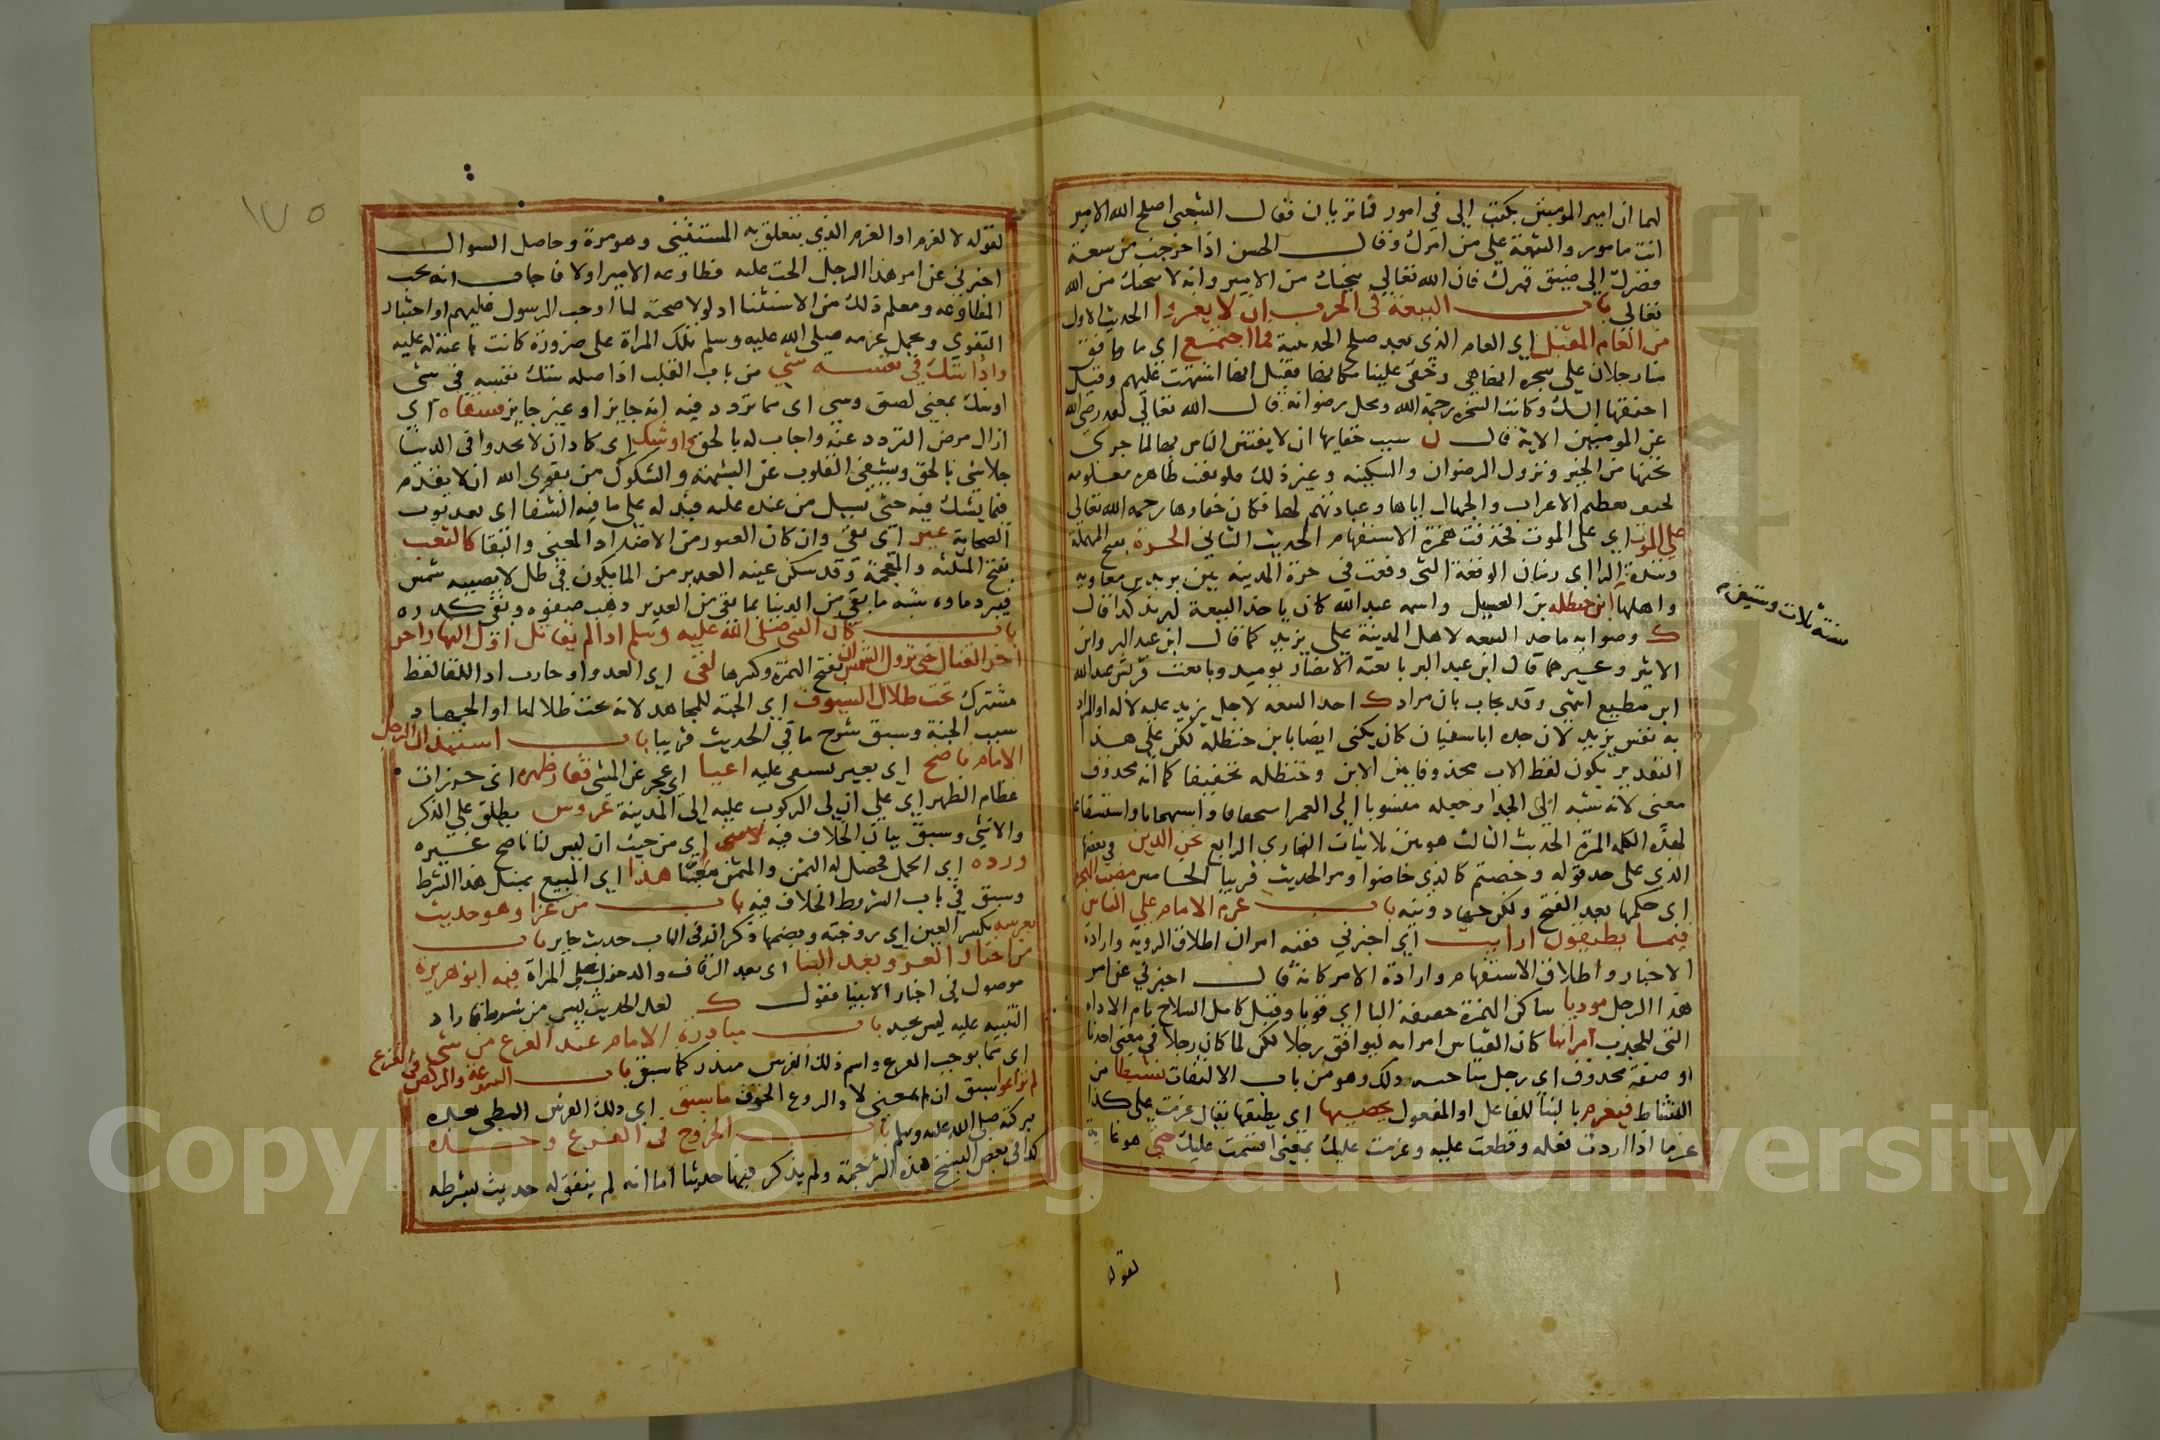 لهما ان امير المومنين يكتب الى في امور فما تريان فقال الشعبي اصلح الله الامير
انت مامور والتبعة على من امرك وقال الحسن اذا خرجت من سعة
قصرك الى ضيق قبرك فان الله تعالى ينجيك من الامير وانه لا ينجيك من الله
تعالى باب البيعة في الحرب ان لا يفروا الحديث الاول
من العام المقبل اي العام الذي بعد صلح الحديبية فما اجتمع اي ما وافق
منا رجلان على شجرة انها هي وخفي علينا مكانها فقيل انها اشتبهت عليهم وقيل
اجتثها السيل وكانت الشجرة رحمة الله ومحل رضوانه قال الله تعالى لقد رضي الله
عن المومنين الاية قال ن سبب خفايها ان لا يفتتن الناس بها لما جرى
تحتها من الخير ونزول الرضوان والسكينة وغير ذلك فلو بقيت ظاهرة معلومة
لخيف تعظيم الاعراب والجهال اياها وعبادتهم لها فكان خفاوها رحمة الله تعالى
على الموت اي على الموت فحذفت همزة الاستفهام الحديث الثاني الحرة بفتح المهملة
وشدة الرا اي زمان الوقعة التي وقعت في حرة المدينة بين يزيد بن معاوية
واهلها ابن حنظلة بن الغسيل واسمه عبد الله كان ياخذ البيعة ليزيد كذا قال
ك وصوابه ياخذ البيعة لاهل المدينة على يزيد كما قال ابن عبد البر وابن
الاثير وغيرهما قال ابن عبد البر بايعته الانصار يوميذ وبايعت قريش عبد الله
ابن مطيع انتهى وقد يجاب بان مراد ك اخذ البيعة لاجل يزيد عليه لا له او المراد
به نفس يزيد لان جده ابا سفيان كان يكنى ايضا بابن حنظلة لكن على هذا
التقدير يكون لفظ الاب محذوفا بين الابن وحنظلة تخفيفا كما انه محذوف
معنى لانه نسبه الى الجد او جعله منسوبا الى العم
لهذه الكلمة المرة الحديث الثالث هو من ثلاثيات البخاري الرابع نحن الذين في بعضها
الذي على حد قوله وخضتم كالذي خاضوا ومر الحديث قريبا الخامس مضت الهجرة
اي حكمها بعد الفتح ولكن جهاد ونية باب عزم الامام على الناس
فيما يطيقون ارايت اي اخبرني ففيه امران اطلاق الروية وارادة
الاخبار واطلاق الاستفهام وارادة الامر كانه قال اخبرني عن امر
هذا الرجل موديا ساكن الهمزة خفيفة اليا اي قويا وقيل كامل السلاح تام الاداة
التي للحرب امرائنا كان القياس امرايه ليوافق رجلا لكن لما كان رجلا في معنى احدنا
او صفة محذوف اي رجل منا حسن ذلك وهو من باب الالتفات نشيطا من
النشاط فيعزم بالبنا للفاعل او المفعول نحصيها اي يطيقها يقال عزمت على كذا
عزما اذا اردت فعله وقطعت عليه وعزمت عليك بمعنى اقسمت عليك حتى هو غاية
سنة ثلاث وستين
لقوله
١٧٥
لقوله لا لعزم او العزم الذي يتعلق به المستثنى وهو مرة وحاصل السوال
اخبرني عن امر هذا الرجل الحب عليه مطاوعة الامير او لا فاجاب انه يجب
المطاوعة ومعلم ذلك من الاستثنا اذ لولا صحته لما اوجب الرسول عليهم او احتياز
التقوى ويحمل عزمه صلى الله عليه وسلم تلك المرة على ضرورة كانت باعثة له عليه
واذا شك في نفسه شي من باب القلب اذ اصله شك نفسه في شي
او شك بمعنى لصق وشي اي مما تردد فيه انه جايز او غير جايز فشفاه اي
ازال مرض التردد عنه واجاب له بالحق واوشك اي كاد ان لا تجدوا في الدنيا
من يفتي بالحق ويشفي القلوب عن الشبهة والشكوك من تقوى الله ان لا يقدم
فيما يشك فيه حتى يسيل من عنده علم فيدله على ما فيه الشفا اي بعد ذهاب
الصحابة غبر اي بقي وان كان الغبور من الاضداد المعنى والبقا كالثغب
بفتح المثلثة والمعجمة وقد تسكن عينه الغدير من الما يكون في ظل لا تصيبه شمس
فيبرد ماوه شبه ما بقي من الدنيا بما بقي من الغدير ذهب صفوه وبقي كدره
باب كان النبي صلى الله عليه وسلم اذا لم يقاتل اول النهار اخر
اخر القتال حتى تزول الشمس ان بفتح الهمزة وكسرها لقي اي العدو او حارب اذ اللقا لفظ
مشترك تحت ظلال السيوف اي الجنة للمجاهد لانه تحت ظلالها او الجهاد
سبب الجنة وسبق شرح ما في الحديث قريبا باب استيذان الرجل
الامام ناضح اي بعير يستقى عليه اعيا اي عجز عن المشي فقار ظهره اي خرزات
عظام الظهر اي على ان لي الركوب عليه الى المدينة عروس يطلق على الذكر
والانثى وسبق بيان الخلاف فيه لامني اي من حيث ان ليس لنا ناضح غيره
ورده اي الجمل فحصل له الثمن والمثمن معا هذا اي المبيع بمثل هذا الشرط
وسبق في باب الشروط الخلاف فيه باب من غزا وهو حديث
بعرسه بكسر العين اي بزوجته وبضمها ذكر انه في الباب حديث جابر باب
من اختار الغزو بعد البنا اي بعد الزفاف والدخول على المراة فيه ابو هريرة
موصول في اخبار الانبيا فقول ك لعل الحديث ليس من شرطه فاراد
التنبيه عليه ليس بجيد باب مبادرة الامام عند الفزع من شي
اي مما يوجب الفزع واسم ذلك الفرس مندوب كما سبق باب السرعة والركض في الفزع
لم تراعوا سبق ان لم بمعنى لا والروع الخوف ما سبق اي ذلك الفرس البطي بعده
ببركته صلى الله عليه وسلم باب الخروج في الفزع وحده
كذا في بعض النسخ هذه الترجمة ولم يذكر فيها حديثا اما انه لم يتفق له حديث بشرطه
Copyright © King Saud University